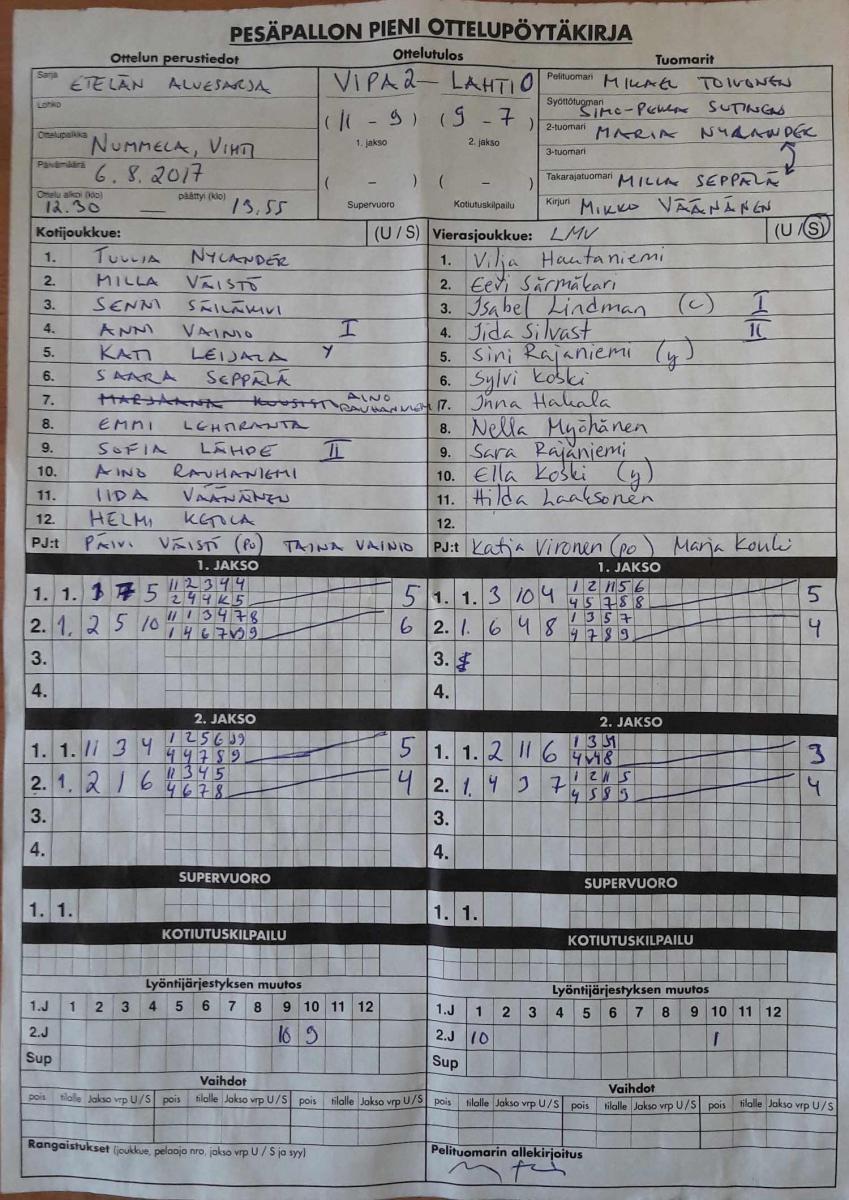 PESÄPALLON PIENI OTTELUPÖYTÄKIRJA
Ottelun perustiedot
Ottelutulos
Tuomarit
Sarja ETELÄN ALUESARJA
Lohko
Ottelupaikka NUMMELA, VIHTI
Päivämäärä 6.8.2017
Ottelu alkoi (klo) 12.30 — päättyi (klo) 13.55
VIPA2 – LAHTI0
(11 - 9) (9 - 7)
1. jakso 2. jakso
( - ) ( - )
Supervuoro Kotiutuskilpailu
Pelituomari MIKAEL TOIVONEN
Syöttötuomari SIMO-PEKKA SUTINEN
2-tuomari MARIA NYLANDER
3-tuomari
Takarajatuomari MILLA SEPPÄLÄ
Kirjuri MIKKO VÄÄNÄNEN
Kotijoukkue: (U / S)
1. TUULIA NYLANDER
2. MILLA VÄISTÖ
3. SENNI SÄILÄKIVI
4. ANNI VAINIO I
5. KATI LEIJALA Y
6. SAARA SEPPÄLÄ
7. MARJAANA KUUSISTO AINO RAUHANIEMI
8. EMMI LEHTIRANTA
9. SOFIA LÄHDE II
10. AINO RAUHANIEMI
11. IIDA VÄÄNÄNEN
12. HELMI KETOLA
PJ:t PÄIVI VÄISTÖ (PO) TAINA VAINIO
Vierasjoukkue: LMV (U / S)
1. Vilja Hautaniemi
2. Eevi Särmäkari
3. Isabel Lindman (c) I
4. Iida Silvast II
5. Sini Rajaniemi (y)
6. Sylvi Koski
7. Inna Hakala
8. Nella Myöhänen
9. Sara Rajaniemi
10. Ella Koski (y)
11. Hilda Laaksonen
12.
PJ:t Katja Vironen (po) Marja Kouki
1. JAKSO
1. 1. 5 11 2 3 4 4 5
2. 1. 2 5 10 11 1 3 4 7 8 6
3.
4.
1. JAKSO
1. 1. 3 10 4 1 2 11 5 6 5
4 5 7 8 8
2. 1. 6 4 8 1 3 5 7 4
4 7 8 9
3.
4.
2. JAKSO
1. 1. 11 3 4 1 2 5 6 5
4 4 7 8 9
2. 1. 2 1 6 11 3 4 5 4
4 6 7 8
3.
4.
2. JAKSO
1. 1. 2 11 6 1 3 3
2. 1. 4 3 7 1 2 11 5 4
4 5 8 9
3.
4.
SUPERVUORO
1. 1.
SUPERVUORO
1. 1.
KOTIUTUSKILPAILU
KOTIUTUSKILPAILU
Lyöntijärjestyksen muutos
1.J 1 2 3 4 5 6 7 8 9 10 11 12
2.J 10 9
Sup
Lyöntijärjestyksen muutos
1.J 1 2 3 4 5 6 7 8 9 10 11 12
2.J 10 1
Sup
Vaihdot
pois tilalle Jakso vrp U / S pois tilalle Jakso vrp U / S pois tilalle Jakso vrp U / S
Vaihdot
pois tilalle Jakso vrp U / S pois tilalle Jakso vrp U / S pois tilalle Jakso vrp U / S
Rangaistukset (joukkue, pelaaja nro, jakso vrp U / S ja syy)
Pelituomarin allekirjoitus